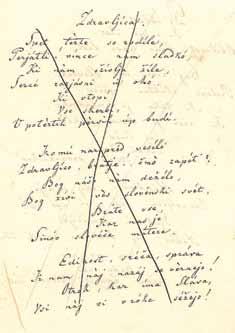 Zdravljica.
Spet terte so rodile,
Perjatli, vince nam sladkó,
Ki nam oživlja žile,
Sercé razjásni in oko
Ki utopi
Vse skerbi,
V potertih persih up budi.
Komú narpred veselo
Zdravljico, bratje! čmo zapet'?
Bog našo nam deželo,
Bog živi vès slovenski svet,
Brate vse,
Kar nas je
Sinóv slovéče mátere.
Edinost, sreča, správa
K nam naj nazaj se vernejo!
Otrók, kar ima Sláva,
Vsi naj si v róke séžejo!